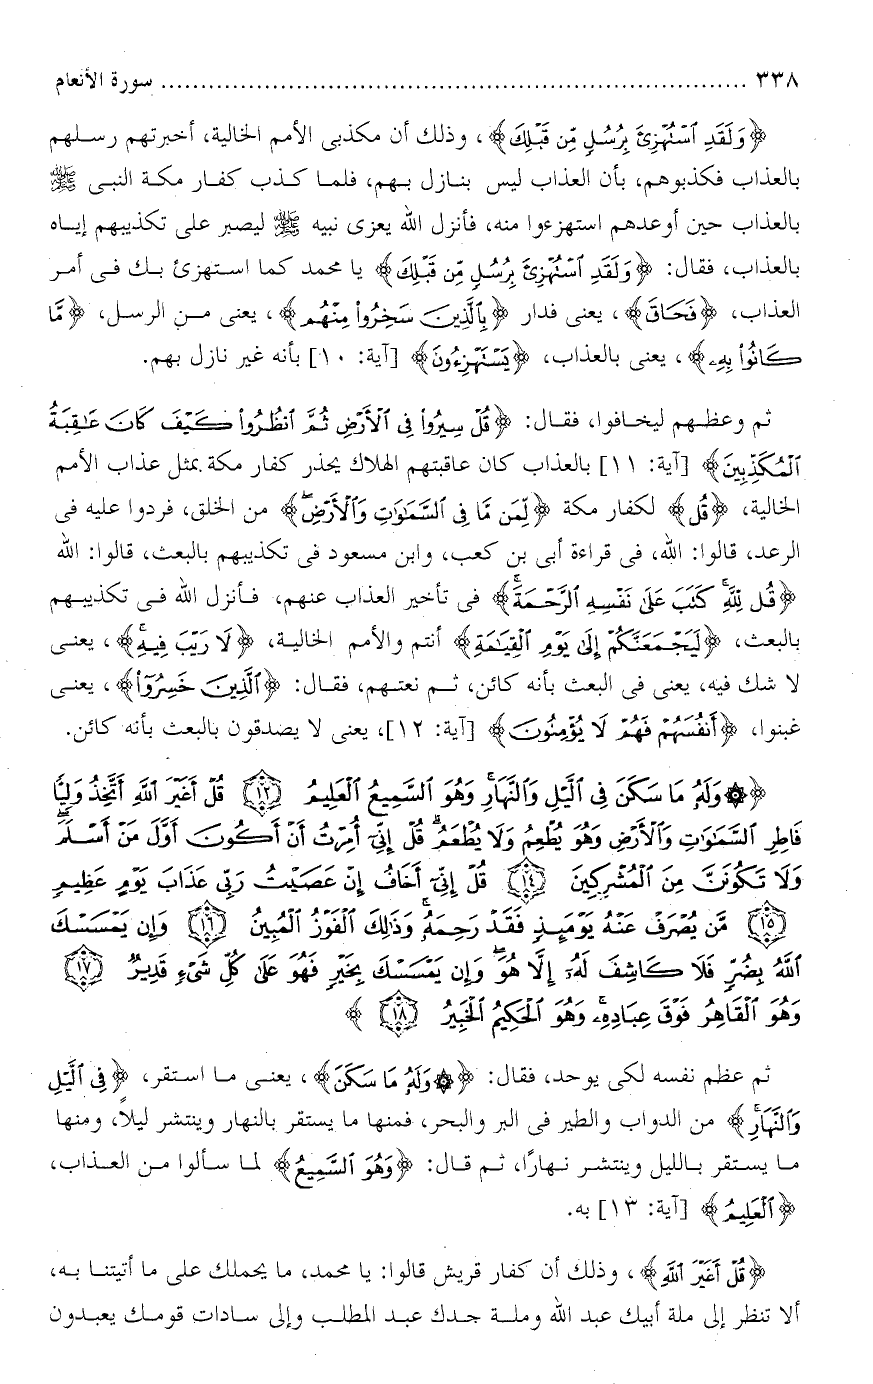 ٣٣٨ ........................................................................... سورة الأنعام
﴿وَلَقَدِ ٱسۡتُهۡزِئَ بِرُسُلٖ مِّن قَبۡلِكَ﴾، وذلك أن مكذبى الأمم الخالية، أخبرتهم رسلهم
بالعذاب فكذبوهم، بأن العذاب ليس بنازل بهم، فلما كذب كفار مكة النبى ﷺ
بالعذاب حين أوعدهم استهزءوا منه، فأنزل الله يعزى نبيه ﷺ ليصبر على تكذيبهم إياه
بالعذاب، فقال: ﴿وَلَقَدِ ٱسۡتُهۡزِئَ بِرُسُلٖ مِّن قَبۡلِكَ﴾ يا محمد كما استهزئ بك فى أمر
العذاب، ﴿فَحَاقَ﴾، يعنى فدار ﴿بِٱلَّذِينَ سَخِرُواْ مِنۡهُم﴾، يعنى من الرسل، ﴿مَّا
كَانُواْ بِهِۦ﴾، يعنى بالعذاب، ﴿يَسۡتَهۡزِءُونَ﴾ [آية: ١٠] بأنه غير نازل بهم.
ثم وعظهم ليخافوا، فقال: ﴿قُلۡ سِيرُواْ فِي ٱلۡأَرۡضِ ثُمَّ ٱنظُرُواْ كَيۡفَ كَانَ عَٰقِبَةُ
ٱلۡمُكَذِّبِينَ﴾ [آية: ١١] بالعذاب كان عاقبتهم الهلاك يحذر كفار مكة بمثل عذاب الأمم
الخالية، ﴿قُل﴾ لكفار مكة ﴿لِّمَن مَّا فِي ٱلسَّمَٰوَٰتِ وَٱلۡأَرۡضِۖ﴾ من الخلق، فردوا عليه فى
الرعد، قالوا: الله، فى قراءة أبى بن كعب، وابن مسعود فى تكذيبهم بالبعث، قالوا: الله
﴿قُل لِّلَّهِۚ كَتَبَ عَلَىٰ نَفۡسِهِ ٱلرَّحۡمَةَۚ﴾ فى تأخير العذاب عنهم، فأنزل الله فى تكذيبهم
بالبعث، ﴿لَيَجۡمَعَنَّكُمۡ إِلَىٰ يَوۡمِ ٱلۡقِيَٰمَةِ﴾ أنتم والأمم الخالية، ﴿لَا رَيۡبَ فِيهِۚ﴾، يعنى
لا شك فيه، يعنى فى البعث بأنه كائن، ثم نعتهم، فقال: ﴿ٱلَّذِينَ خَسِرُوٓاْ﴾، يعنى
غبنوا، ﴿أَنفُسَهُمۡ فَهُمۡ لَا يُؤۡمِنُونَ﴾ [آية: ١٢]، يعنى لا يصدقون بالبعث بأنه كائن.
﴿۞وَلَهُۥ مَا سَكَنَ فِي ٱلَّيۡلِ وَٱلنَّهَارِۚ وَهُوَ ٱلسَّمِيعُ ٱلۡعَلِيمُ ١٣ قُلۡ أَغَيۡرَ ٱللَّهِ أَتَّخِذُ وَلِيّٗا
فَاطِرِ ٱلسَّمَٰوَٰتِ وَٱلۡأَرۡضِ وَهُوَ يُطۡعِمُ وَلَا يُطۡعَمُۗ قُلۡ إِنِّيٓ أُمِرۡتُ أَنۡ أَكُونَ أَوَّلَ مَنۡ أَسۡلَمَۖ
وَلَا تَكُونَنَّ مِنَ ٱلۡمُشۡرِكِينَ ١٤ قُلۡ إِنِّيٓ أَخَافُ إِنۡ عَصَيۡتُ رَبِّي عَذَابَ يَوۡمٍ عَظِيمٖ
١٥ مَّن يُصۡرَفۡ عَنۡهُ يَوۡمَئِذٖ فَقَدۡ رَحِمَهُۥۚ وَذَٰلِكَ ٱلۡفَوۡزُ ٱلۡمُبِينُ ١٦ وَإِن يَمۡسَسۡكَ
ٱللَّهُ بِضُرّٖ فَلَا كَاشِفَ لَهُۥٓ إِلَّا هُوَۖ وَإِن يَمۡسَسۡكَ بِخَيۡرٖ فَهُوَ عَلَىٰ كُلِّ شَيۡءٖ قَدِيرٞ ١٧
وَهُوَ ٱلۡقَاهِرُ فَوۡقَ عِبَادِهِۦۚ وَهُوَ ٱلۡحَكِيمُ ٱلۡخَبِيرُ ١٨﴾
ثم عظم نفسه لكى يوحد، فقال: ﴿۞وَلَهُۥ مَا سَكَنَ﴾، يعنى ما استقر، ﴿فِي ٱلَّيۡلِ
وَٱلنَّهَارِۚ﴾ من الدواب والطير فى البر والبحر، فمنها ما يستقر بالنهار وينتشر ليلاً، ومنها
ما يستقر بالليل وينتشر نهارًا، ثم قال: ﴿وَهُوَ ٱلسَّمِيعُ﴾ لما سألوا من العذاب،
﴿ٱلۡعَلِيمُ﴾ [آية: ١٣] به.
﴿قُلۡ أَغَيۡرَ ٱللَّهِ﴾، وذلك أن كفار قريش قالوا: يا محمد، ما يحملك على ما أتيتنا به،
ألا تنظر إلى ملة أبيك عبد الله وملة جدك عبد المطلب وإلى سادات قومك يعبدون